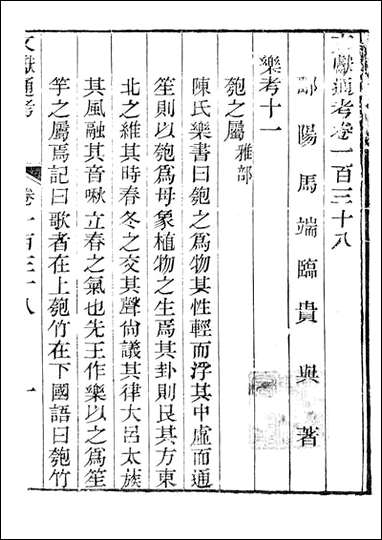 文獻通考卷一百三十八
鄱陽馬端臨貴與著
樂考十一
匏之屬 雅部
陳氏樂書曰匏之爲物其性輕而浮其中虛而通
笙則以匏爲母象植物之生焉其卦則艮其方東
北之維其時春冬之交其聲尙議其律大呂太蔟
其風融其音啾立春之氣也先王作樂以之爲笙
竽之屬焉記曰歌者在上匏竹在下國語曰匏竹
文獻通考
卷一百三十八
一